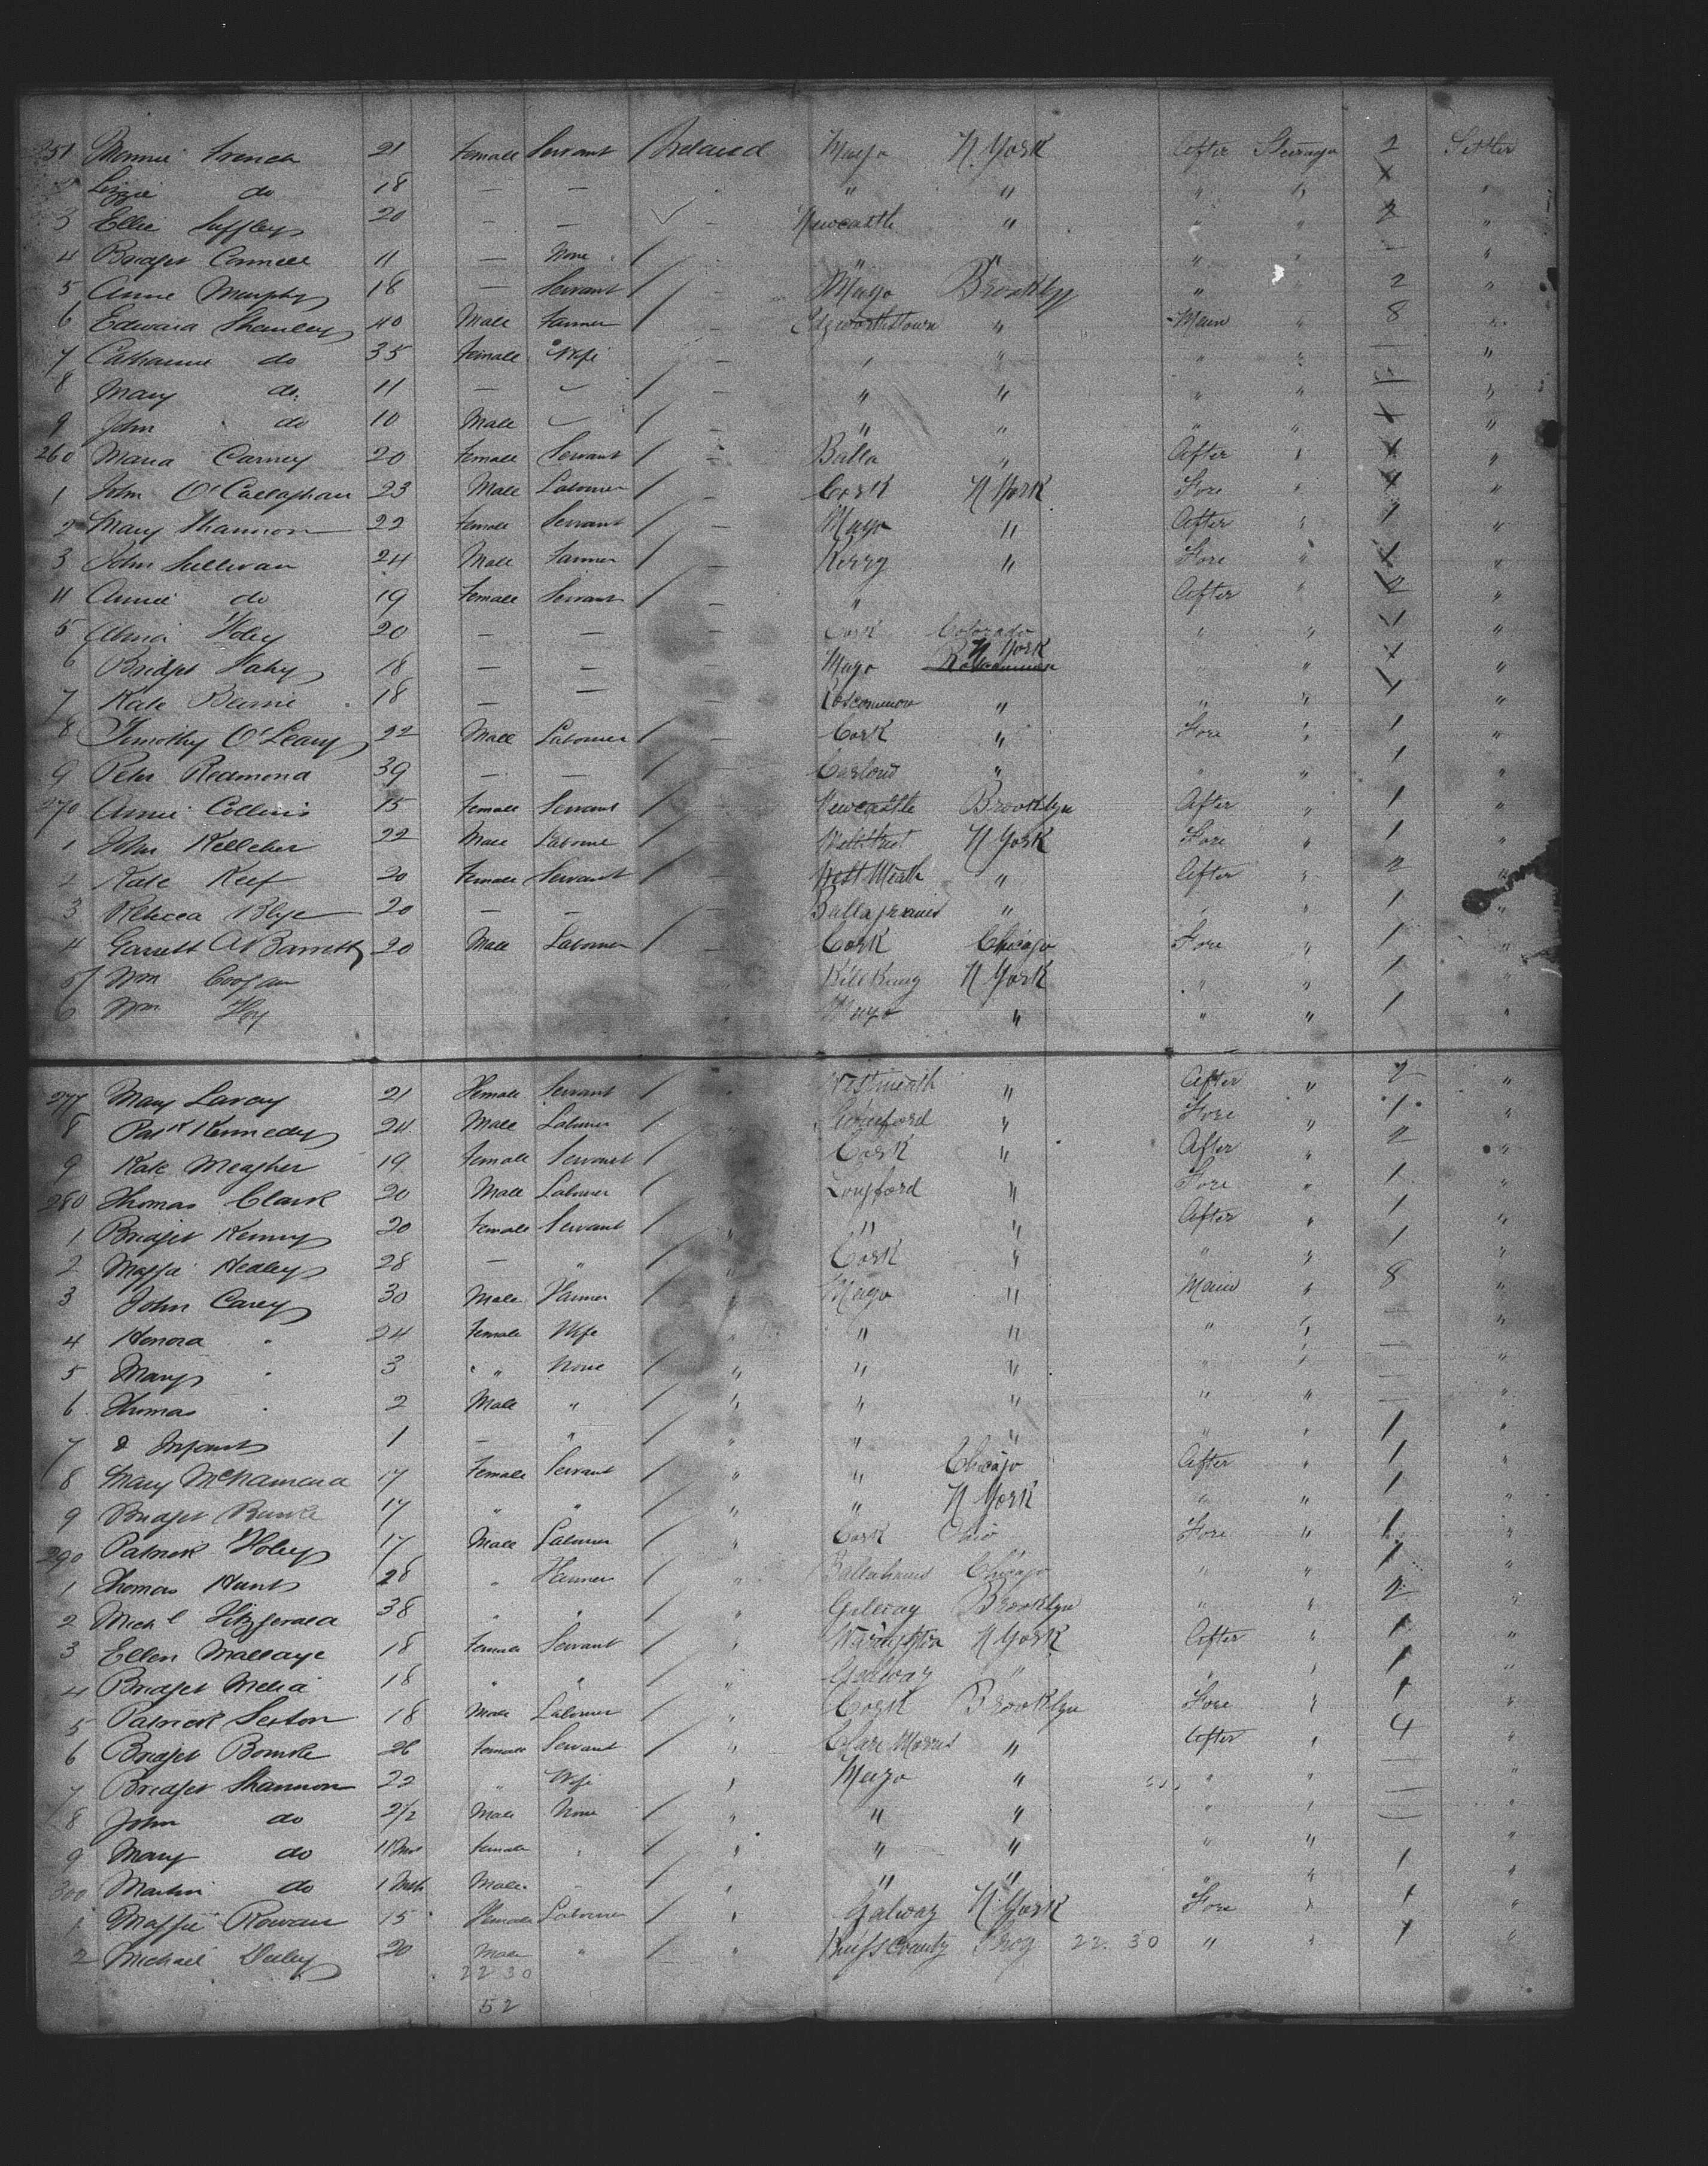 251 Minnie French 21 Female Servant Ireland Mayo N. York After Steerage 2 Settler
Lizzie do 18 — — " " " " "
3 Ellie 20 — — — Newcastle " " " 2 "
4 Bridget Connell 11 — None " " " " — "
5 Anne Murphy 18 — Servant / — Mayo Brooklyn " " 2 "
6 Edward Shanley 40 Male Farmer / — Edgworthstown " Main " 8 "
7 Catharine do 35 Female Wife / — " " " " — "
8 Mary do 11 — / — " " " " — "
9 John do 10 Male / — " " " " "
260 Maria Carney 20 Female Servant / — Balla " After " "
1 John O'Callaghan 23 Male Laborer / — Cork N York Fore " "
2 Mary Shannon 22 Female Servant / — Mayo " After " 1 "
3 John Sullivan 24 Male Farmer / — Kerry " Fore " "
4 Annie do 19 Female Servant / — " After " 2 "
5 20 — — — Cork Colorado " " "
6 Bridget 18 — — Mayo N York " "
7 Kate 18 — — — Roscommon " " " "
8 Timothy O'Leary 22 Male Laborer / — Cork " Fore " 1 "
9 Peter Redmond 39 — — / — Carlow " " " 1 "
270 Annie Collins 15 Female Servant / — Newcastle Brooklyn After " 1 "
1 John Kelleher 22 Male Laborer / — Millstreet N York Fore " 1 "
2 Kate Keef 20 Female Servant / — West Meath " After " 2 "
3 Rebecca 20 — — " " 1 "
4 Garrett A Barrett 20 Male Laborer / — Cork Chicago Fore " 1 "
5 Wm Coogan N York " " 1 "
6 Wm Hoy Mayo " " " 1 "
277 Mary 21 Female Servant / Westmeath " After " 2 "
8 Patk Kennedy 24 Male Laborer / Longford " Fore " 1 "
9 Kate Meagher 19 Female Servant / Cork " After " 2 "
280 Thomas Clark 20 Male Laborer / Longford " Fore " 1 "
1 Bridget Kenny 20 Female Servant / " " " After " 1 "
2 Maggie 28 — " / " Cork " " " 1 "
3 John Carey 30 Male Farmer / " Mayo " Main " 8 "
4 Honora " 24 Female Wife " " " " " — "
5 Mary " 3 " None / " " " " " — "
6 Thomas " 2 Male " / " " " " " — "
7 & Infant 1 — " / " " " " " 1 "
8 Mary McNamara 17 Female Servant / " " Chicago After " 1 "
9 Bridget Burke 17 " " / " " N York " " 1 "
290 Patrick 17 Male Laborer / " Cork Ohio Fore " 1 "
1 Thomas Hunt 28 " Farmer / " Chicago " " 1 "
2 Michl Fitzgerald 38 " " / " Galway Brooklyn " " 2 "
3 Ellen 18 Female Servant / " N York After " 1 "
4 Bridget Melia 18 " " / " Galway " " " 1 "
5 Patrick Sexton 18 Male Laborer / " Cork Brooklyn Fore " 1 "
6 Bridget Bourke 26 Female Servant / " Clare Morris " After " 4 "
7 Bridget Shannon 22 " Wife " Mayo " " " — "
8 John do 2½ Male None / " " " " " — "
9 Mary do 11 Mos Female " / " " " " " "
300 Martin do 1 Mth Male / " " " " " 1 "
1 Maggie Rowan 15 Female Laborer / " Galway N York Fore " 1 "
2 Michael Daley 20 Male " / " Kings County Troy 22 30 " " 1 "
22 30
52